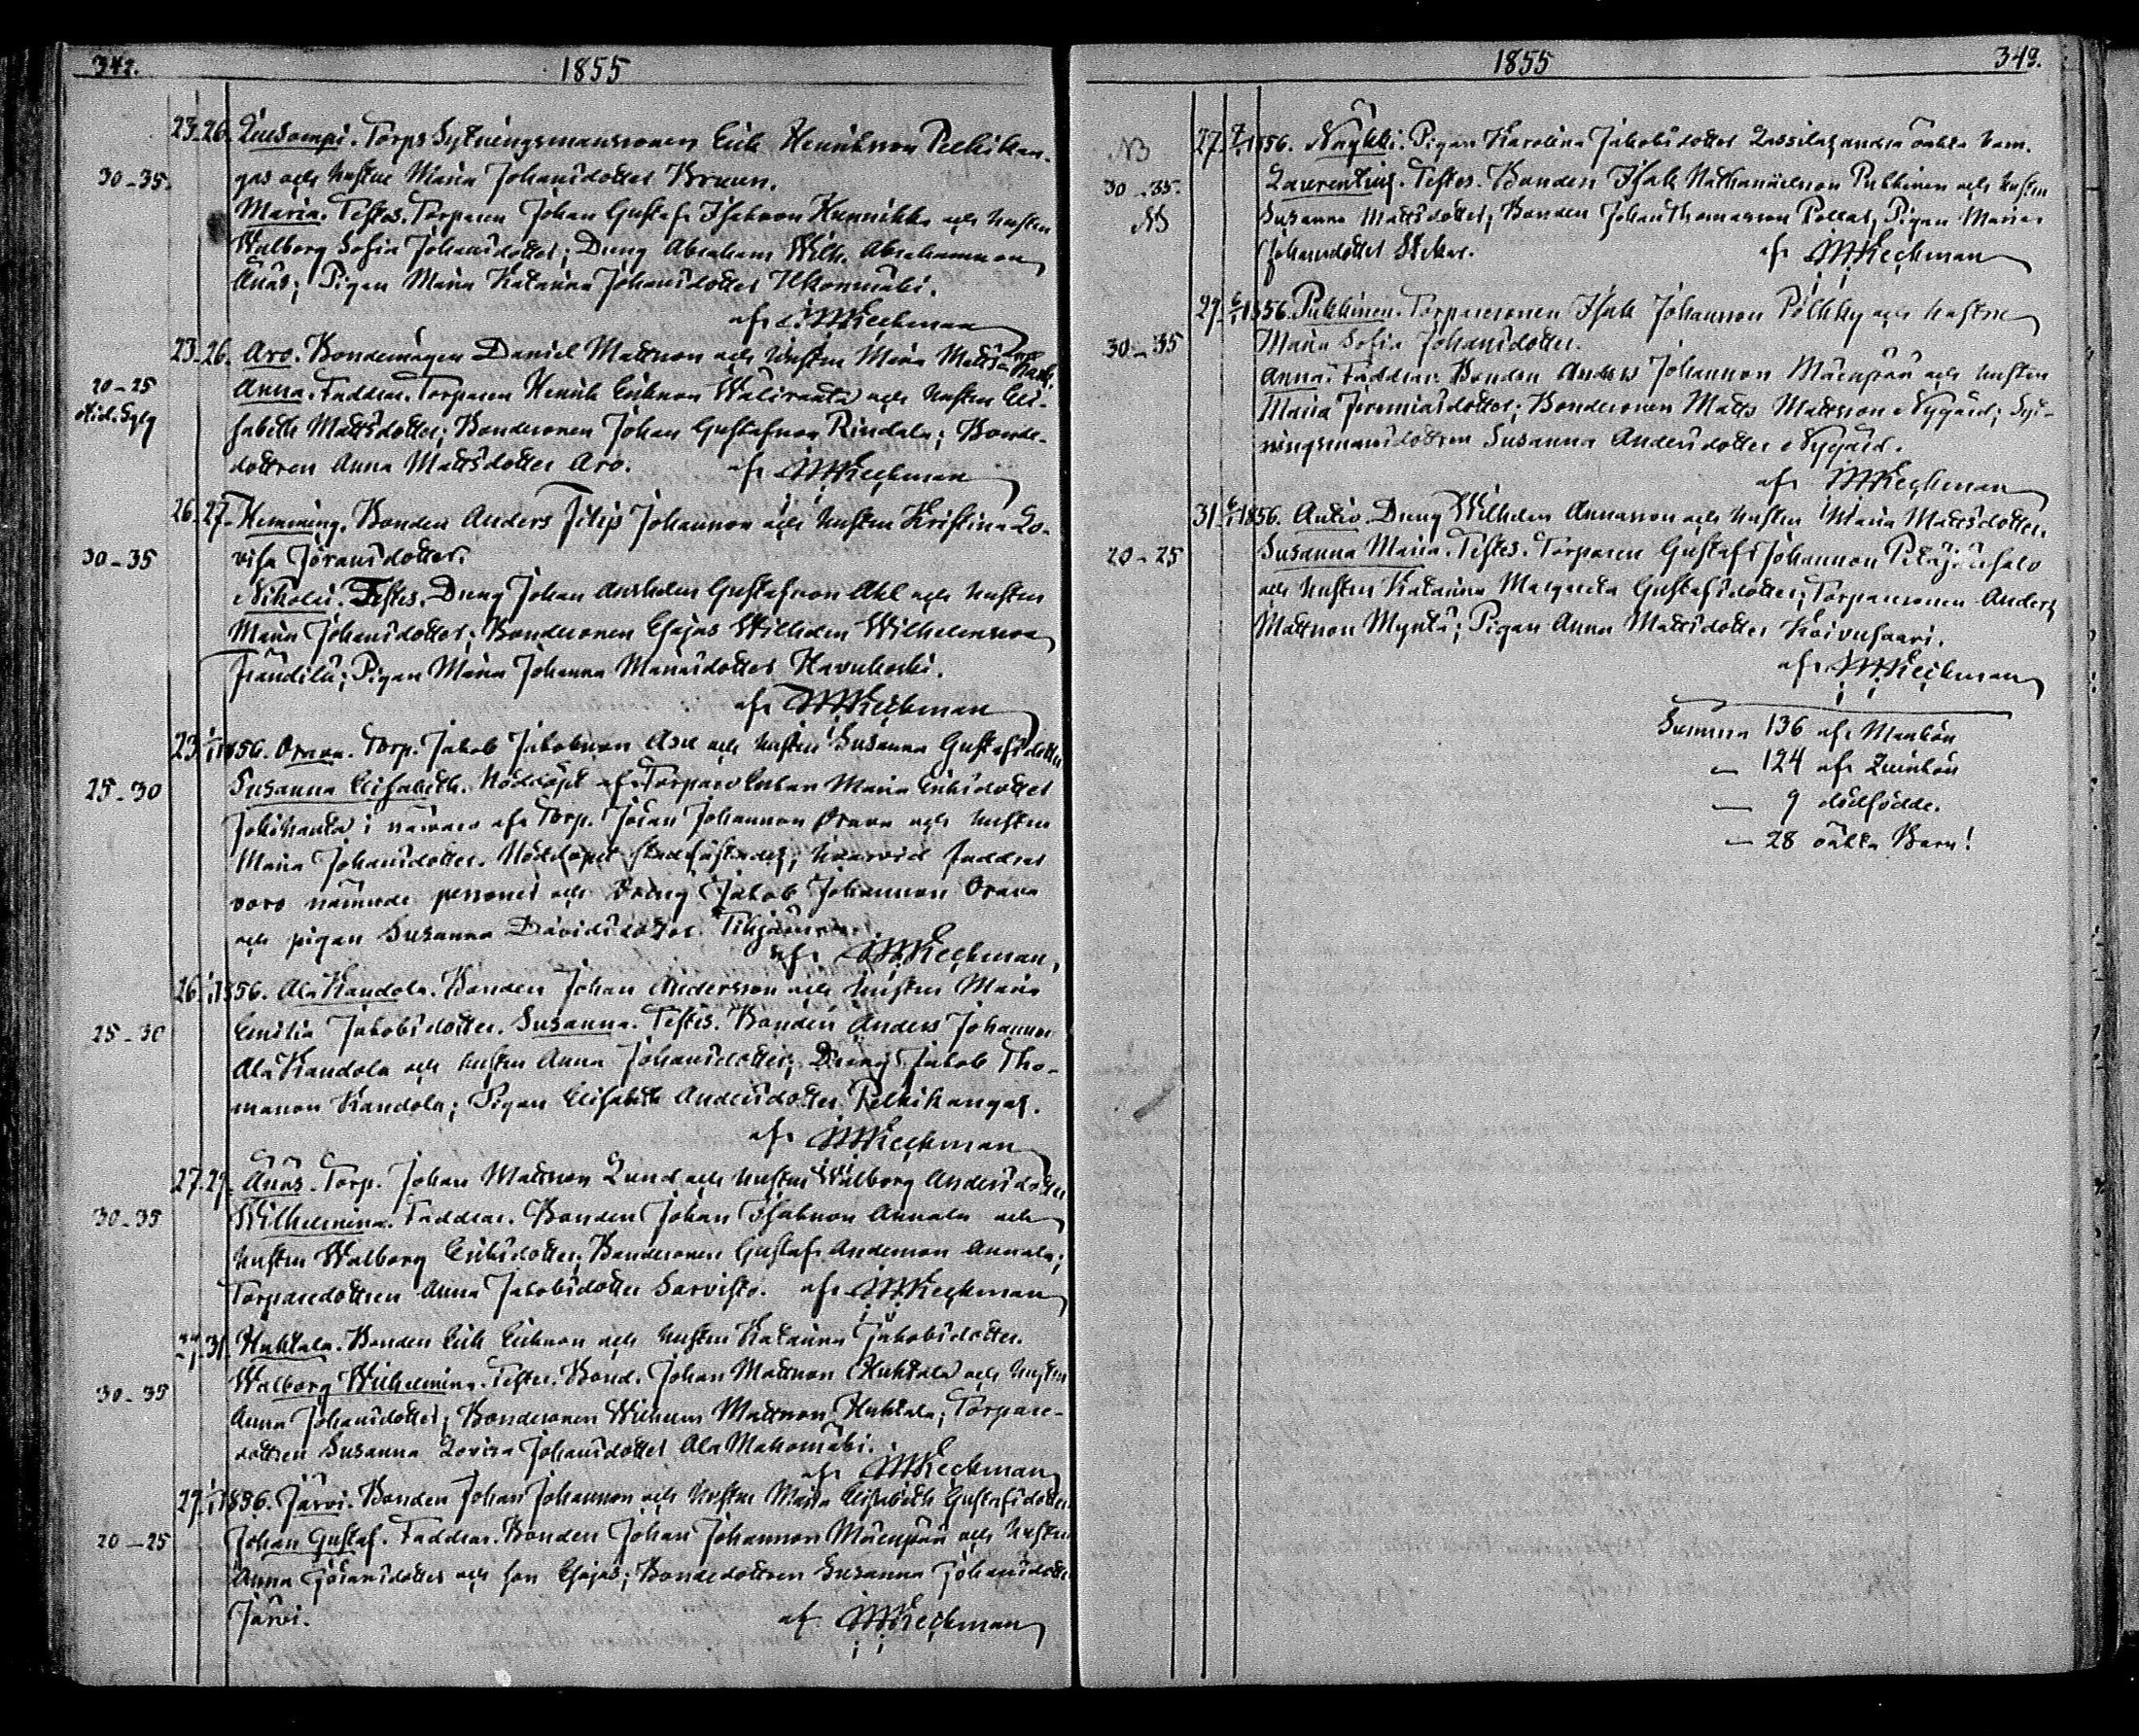 342.
1855
23. 26. Luesompi. Torps Sytningsmanssonen Erik Henriksson Pelkikan-
30-35. gas och hustru Maria Johansdotter Bruun.
Maria. Testes. Torparen Johan Gustaf Isaksson Hunnikko och hustru
Walborg Sofia Johansdotter; Dreng Abraham Wilh. Abrahamsson
Änäs; Pigan Maria Katarina Johansdotter Ukonmäki.
af MKeckman
23. 26. Aro. Bondemågen Daniel Mattsson och hustru Maria Mattsdr
20-25 Anna. Faddrar. Torparen Henrik Eriksson Waliranta och hustru Eli-
sabeth Mattsdotter; Bondesonen Johan Gustafsson Rindala; Bonde-
dottren Anna Mattsdotter Aro. af MKeckman
26. 27. Hemming. Bonden Anders Filip Johansson och hustru Kristina Lo-
30-35 visa Jöransdotter.
Nikolai. Testes. Dreng Johan Anshelm Gustafsson Ahl och hustru
Maria Johansdotter; Bondesonen Esajas Wilhelm Wilhelmsson
Frändilä; Pigan Maria Johanna Mariasdotter Havukoski.
af MKeckman
23. 1/1 1856. Orava. Torp. Jakob Jakobsson Asu och hustru Susanna Gustafsdotter
25-30 Susanna Elisabeth. Nöddöpt af Torpare Enkan Maria Eriksdotter
Jokihanta i närvaro af Torp. Jöran Johansson Orava och hustru
Maria Johansdotter. Nöddopet stadfästades, hvarvid faddrar
voro nämnde personer och Dreng Jakob Johansson Orava
och pigan Susanna Davidsdotter
af MKeckman,
26. 1/1 1856. Ala Kandola. Bonden Johan Andersson och hustru Maria
25-30 Emilia Jakobsdotter. Susanna. Testes. Bonden Anders Johansson
Ala Kandola och hustru Anna Johansdotter; Dreng Jakob Tho-
masson Kandola; Pigan Elisabeth Andersdotter Pelkikangas.
af MKeckman
27. 29. Änäs. Torp. Johan Mattsson Lund och hustru Walborg Andersdotter
30-35 Wilhelmina. Faddrar. Bonden Johan Isaksson Annala och
hustru Walborg Eriksdotter; Bondesonen Gustaf Andersson Annala;
Torparedottren Anna Jakobsdotter Sarvisto. af MKeckman
27. 31. Huhtala. Bonden Erik Eriksson och hustru Katarina Jakobsdotter.
30-35 Walborg Wilhelmina. Testes. Bond. Johan Mattsson Huhtala och hustru
Anna Johansdotter; Bondesonen Wilhelm Mattsson Huhtala; Torpare-
dottren Susanna Lovisa Johansdotter Ala Mahomäki.
af MKeckman
29. 1/1 1856. Järvi. Bonden Johan Johansson och hustru Maria Elisabeth Gustafsdotter
20-25 Johan Gustaf. Faddrar. Bonden Johan Johansson Mäenpää och hustru
Anna Jöransdotter och son Esajas; Bondedottren Susanna Johansdotter
Järvi. af MKeckman
1855
343.
NB 27. 1856. Näykki. Pigan Karolina Jakobsdotter Lassilas andra oäkta barn.
30-35. Laurentius. Testes. Bonden Isak Nathanaelsson Pukkinen och hustru
NB Susanna Mattsdotter, Bonden Johan Thomasson Pollas, Pigan Maria
Johansdotter af MKeckman
29. 6/1 1856. Pukkinen. Torparesonen Isak Johansson Pölkky och hustru
30-35 Maria Sofia Johansdotter.
Anna. Faddrar. Bonden Anders Johansson Mäenpää och hustru
Maria Jeremiasdotter; Bondesonen Matts Mattsson Nygård; Syt-
ningsmansdottren Susanna Andersdotter Nygård.
af MKeckman
31. 6/1 1856. Antio. Dreng Wilhelm Annasson och hustru Maria Mattsdotter.
20-25 Susanna Maria. Testes. Torparen Gustaf Johansson Petäjäsalo
och hustru Katarina Margareta Gustafsdotter; Torparesonen Anders
Mattsson Myntä; Pigan Anna Mattsdotter Koivusaari.
af MKeckman
Summa 136 af Mankön
— 124 af Quinkön
— 9 dödfödde.
— 28 oäkta Barn!